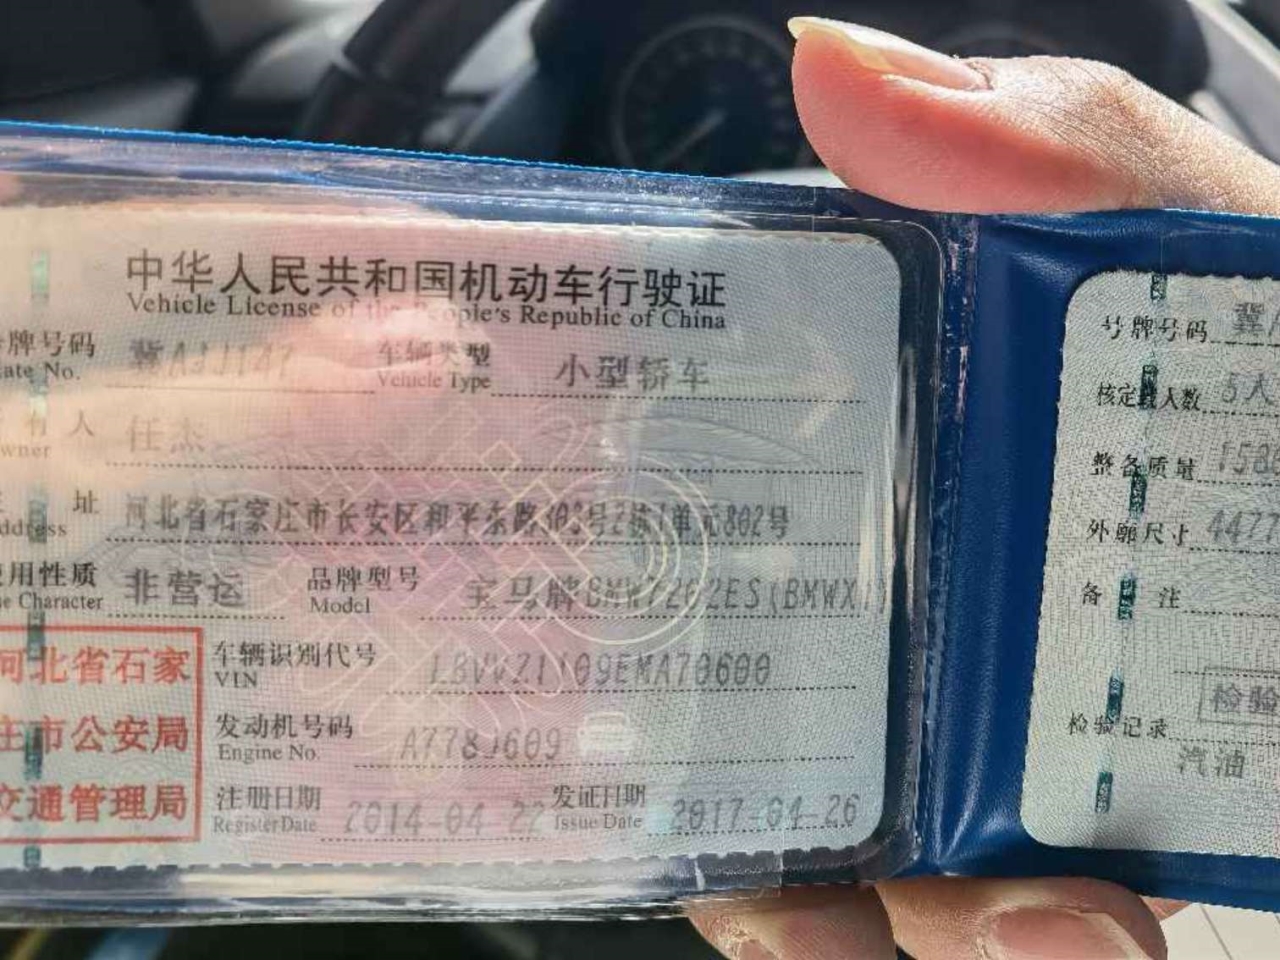 中华人民共和国机动车行驶证
Vehicle License of the People's Republic of China
牌号码 冀AJJ147 车辆类型 小型轿车
ate No. Vehicle Type
有人 任杰
wner
址 河北省石家庄市长安区和平东路303号2栋1单元802号
ddress
使用性质 非营运 品牌型号 宝马牌BMW7202ES(BMWX1)
e Character Model
河北省石家
庄市公安局
交通管理局
车辆识别代号
VIN
发动机号码 A778J609
Engine No.
注册日期 2014-04-22 发证日期 2017-04-26
Register Date Issue Date
号牌号码 冀
核定载人数 5人
整备质量 158
外廓尺寸 4477
备注
检验记录 检验
汽油